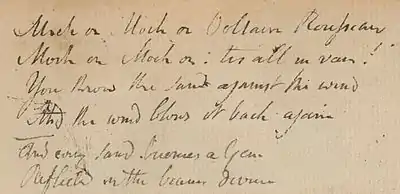 Mock on Mock on Voltaire Rousseau
Mock on Mock on: tis all in vain!
You throw the sand against the wind
And the wind blows it back again
And every sand becomes a Gem
Reflected in the beams divine